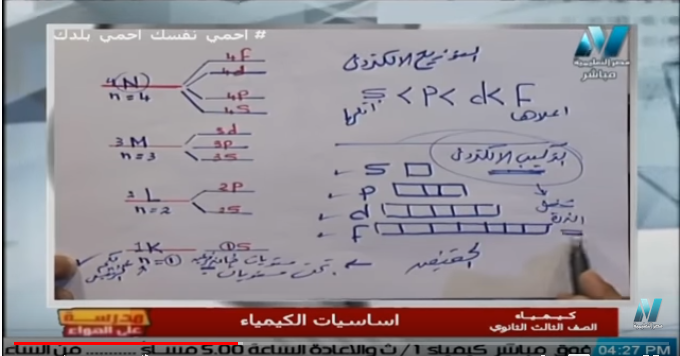 # احمي نفسك احمي بلدك
مصر التعليمية
مباشر
التوزيع الالكتروني
S < P < d < F
اقلها
اعلاها
4F
4d
4N
n=4
4P
4S
3d
3M
3P
n=3
3S
2P
n=2
2S
1K
1S
n=1
التركيب الالكتروني
S
P
d
F
الذرة
الحقيقيه
مستويات
تحت مستويات
مدرسة
على الهواء
كيمياء
الصف الثالث الثانوي
اساسيات الكيمياء
مباشر كيمياء 1 / ث والاعادة الساعة 5.00 مساء .......... من الساعة
04:27 PM